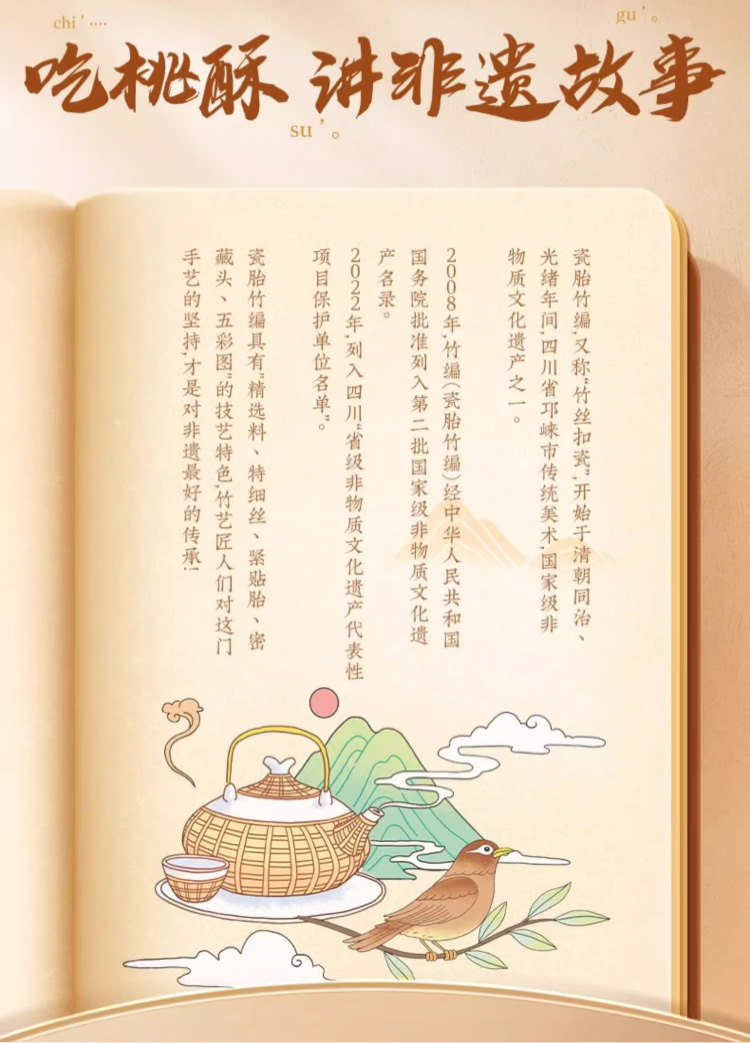 chi'····
gu'。
吃桃酥 讲非遗故事
su'。
瓷胎竹编,又称“竹丝扣瓷”,开始于清朝同治、
光绪年间,四川省邛崃市传统美术,国家级非
物质文化遗产之一。
2008年,竹编(瓷胎竹编)经中华人民共和国
国务院批准列入第二批国家级非物质文化遗
产名录。
2022年,列入四川“省级非物质文化遗产代表性
项目保护单位名单”。
瓷胎竹编具有“精选料、特细丝、紧贴胎、密
藏头、五彩图”的技艺特色,竹艺匠人们对这门
手艺的坚持,才是对非遗最好的传承!